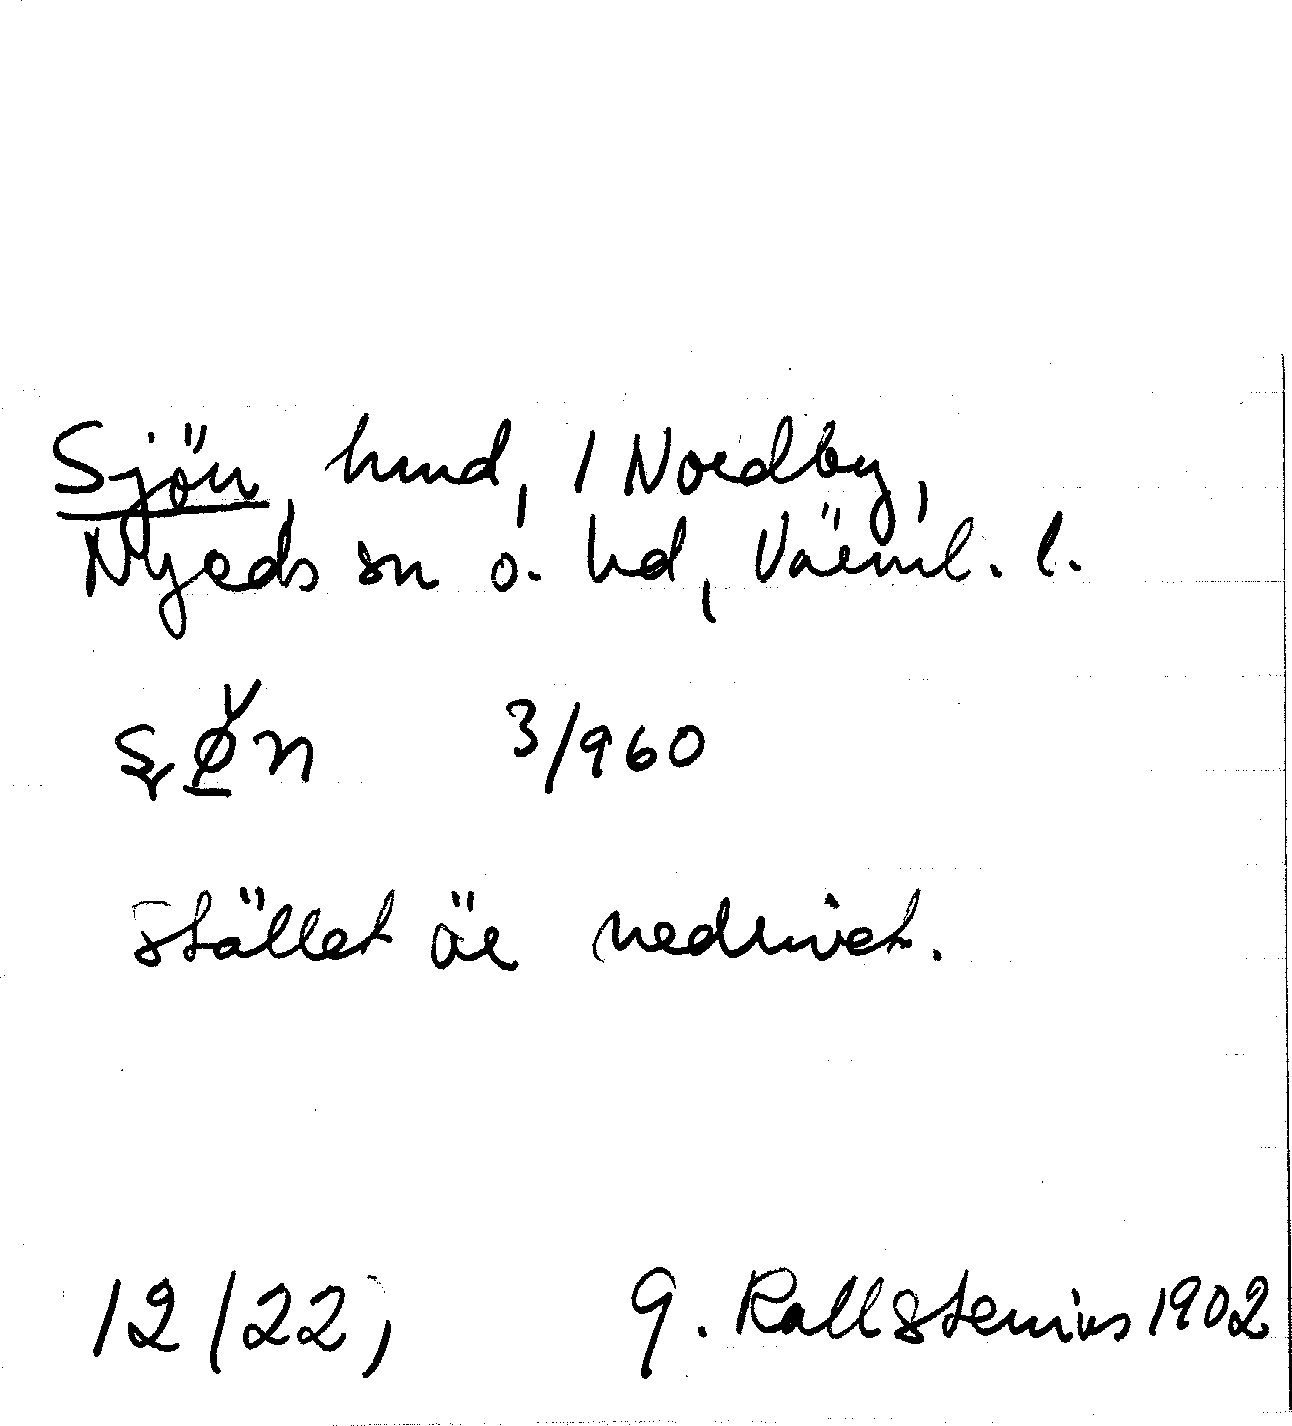 Sjön, hmd, / Nordby,
Nyeds sn o. hd, Värml. l.
3/960
stället är nedrivet.
12/22, G. Kallstenius 1902